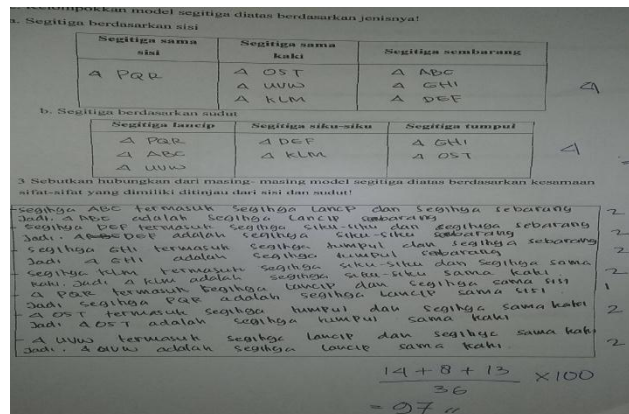 2. Kelompokkan model segitiga diatas berdasarkan jenisnya!
a. Segitiga berdasarkan sisi
Segitiga sama sisi Segitiga sama kaki Segitiga sembarang
Δ PQR Δ OST Δ ABC
Δ UVW Δ GHI
Δ KLM Δ DEF
4
b. Segitiga berdasarkan sudut
Segitiga lancip Segitiga siku-siku Segitiga tumpul
Δ PQR Δ DEF Δ GHI
Δ ABC Δ KLM Δ OST
Δ UVW
4
3 Sebutkan hubungkan dari masing- masing model segitiga diatas berdasarkan kesamaan
sifat-sifat yang dimiliki ditinjau dari sisi dan sudut!
- Segitiga ABC termasuk Segitiga Lancip dan Segitiga Sebarang 2
Jadi. Δ ABC adalah Segitiga Lancip sebarang
- Segitiga DEF termasuk Segitiga siku-siku dan Segitiga Sebarang 2
Jadi. Δ DEF adalah Segitiga siku-siku sebarang
- Segitiga GHI termasuk Segitiga tumpul dan Segitiga sebarang 2
Jadi Δ GHI adalah Segitiga tumpul sebarang
- Segitiga KLM termasuk segitiga siku-siku dan Segitiga sama
kaki. Jadi Δ KLM adalah segitiga siku-siku sama kaki. 2
- Δ PQR termasuk Segitiga Lancip dan Segitiga sama sisi 1
Jadi segitiga PQR adalah segitiga Lancip sama sisi
- Δ OST termasuk segitiga tumpul dan Segitiga sama kaki 2
Jadi Δ OST adalah segitiga tumpul sama kaki
- Δ UVW termasuk segitiga Lancip dan segitiga sama kaki 2
Jadi. Δ UVW adalah segitiga Lancip sama kaki
14 + 8 + 13
36
× 100
= 97 //